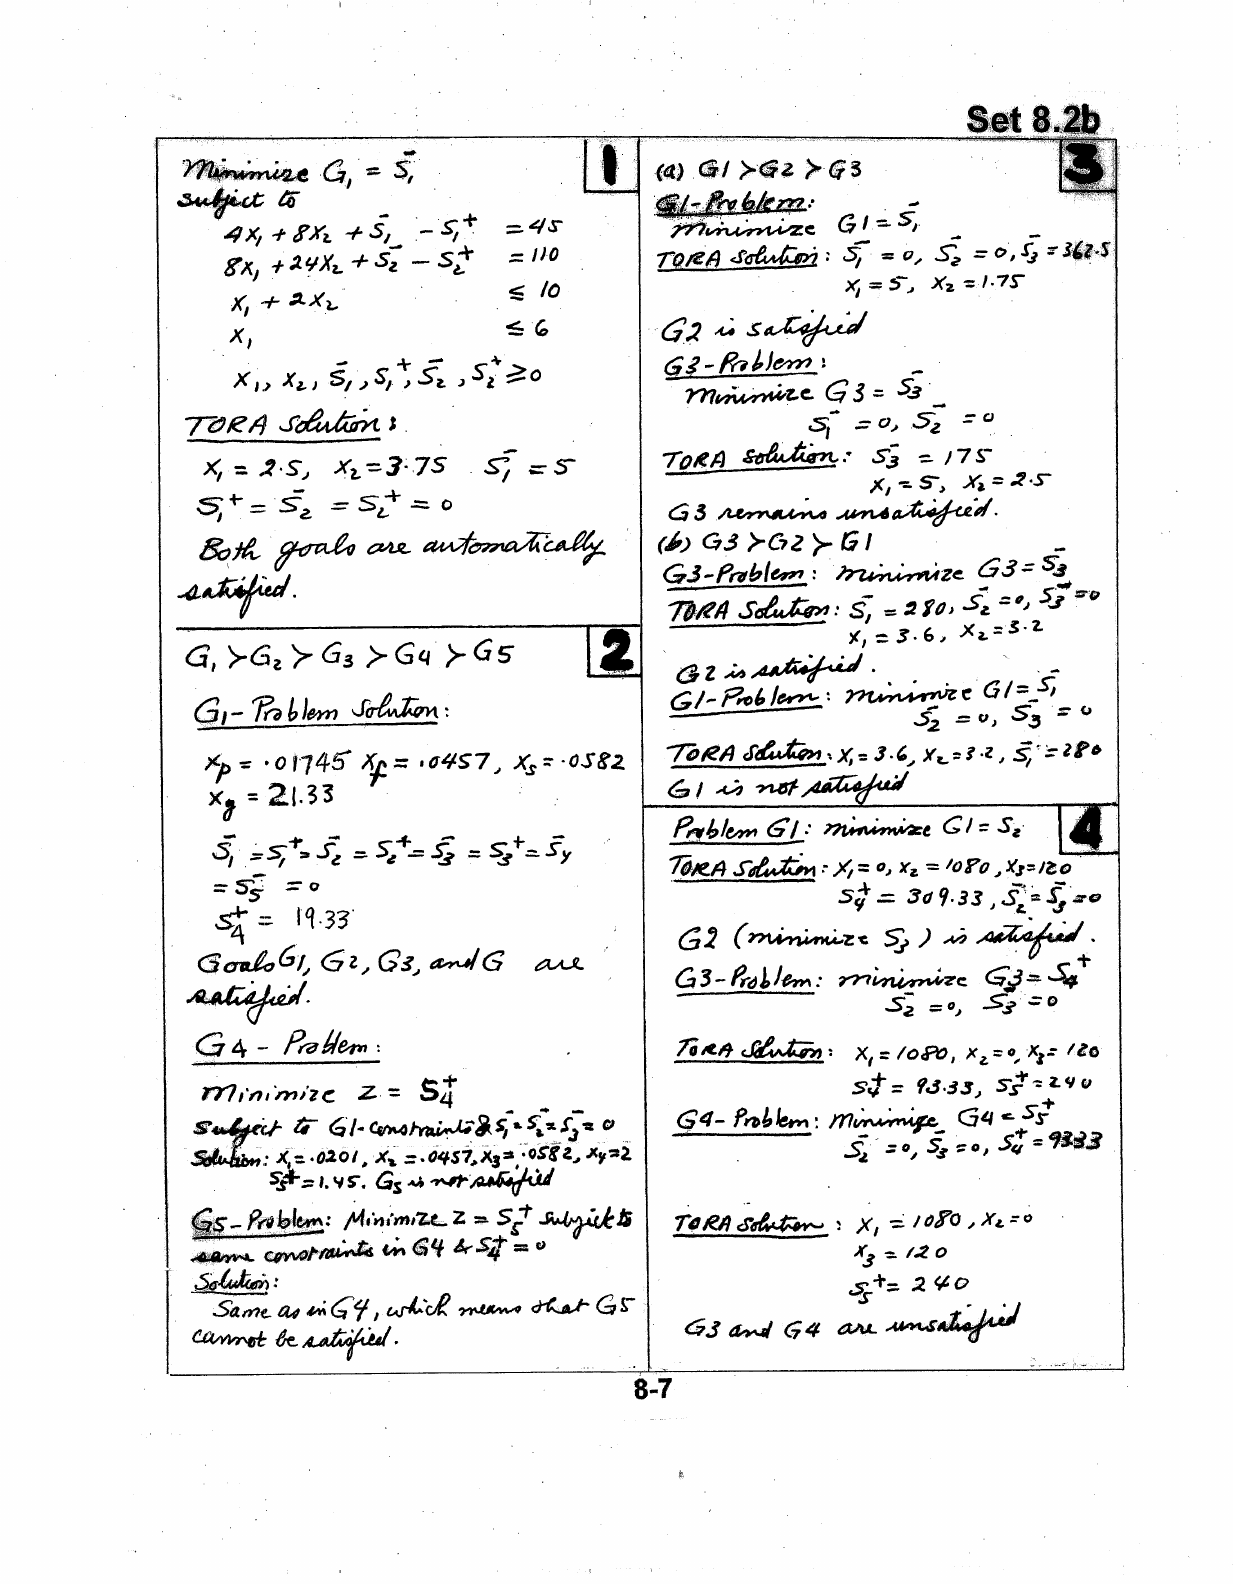 Set 8.2b
1
Minimize G₁ = S₁⁻
subject to
4X₁ + 8X₂ + S₁⁻ - S₁⁺ = 45
8X₁ + 24X₂ + S₂⁻ - S₂⁺ = 110
X₁ + 2X₂ ≤ 10
X₁ ≤ 6
X₁, X₂, S₁⁻, S₁⁺, S₂⁻, S₂⁺ ≥ 0
TORA Solution:
X₁ = 2.5, X₂ = 3.75 S₁⁻ = 5
S₁⁺ = S₂⁻ = S₂⁺ = 0
Both goals are automatically
satisfied.
2
G₁ ≻ G₂ ≻ G₃ ≻ G4 ≻ G5
G₁ - Problem Solution:
Xp = .01745 Xf = .0457, Xs = .0582
Xg = 21.33
S₁⁻ = S₁⁺ = S₂⁻ = S₂⁺ = S₃⁻ = S₃⁺ = S₄⁻
= S₅⁻ = 0
S₄⁺ = 19.33
Goals G1, G2, G3, and G are
satisfied.
G4 - Problem:
Minimize Z = S₄⁺
subject to G1-constraints & S₁⁻ = S₂⁻ = S₃⁻ = 0
Solution: X₁ = .0201, X₂ = .0457, X₃ = .0582, X₄ = 2
S₅⁺ = 1.45. G₅ is not satisfied
G5 - Problem: Minimize Z = S₅⁺ subject to
same constraints in G4 & S₄⁺ = 0
Solution:
Same as in G4, which means that G5
cannot be satisfied.
3
(a) G1 ≻ G2 ≻ G3
G1-Problem:
minimize G1 = S₁⁻
TORA Solution: S₁⁻ = 0, S₂⁻ = 0, S₃⁻ = 362.5
X₁ = 5, X₂ = 1.75
G2 is satisfied
G3-Problem:
minimize G3 = S₃⁻
S₁⁻ = 0, S₂⁻ = 0
TORA solution: S₃⁻ = 175
X₁ = 5, X₂ = 2.5
G3 remains unsatisfied.
(b) G3 ≻ G2 ≻ G1
G3-Problem: minimize G3 = S₃⁻
TORA Solution: S₁⁻ = 280, S₂⁻ = 0, S₃⁻ = 0
X₁ = 3.6, X₂ = 3.2
G2 is satisfied.
G1-Problem: minimize G1 = S₁⁻
S₂⁻ = 0, S₃⁻ = 0
TORA Solution: X₁ = 3.6, X₂ = 3.2, S₁⁻ = 280
G1 is not satisfied
4
Problem G1: minimize G1 = S₂⁻
TORA Solution: X₁ = 0, X₂ = 1080, X₃ = 120
S₄⁺ = 309.33, S₂⁻ = S₃⁻ = 0
G2 (minimize S₃⁻) is satisfied.
G3-Problem: minimize G3 = S₄⁺
S₂⁻ = 0, S₃⁻ = 0
TORA Solution: X₁ = 1080, X₂ = 0, X₃ = 120
S₄⁺ = 93.33, S₅⁺ = 240
G4-Problem: Minimize G4 = S₅⁺
S₂⁻ = 0, S₃⁻ = 0, S₄⁺ = 93.33
TORA Solution: X₁ = 1080, X₂ = 0
X₃ = 120
S₅⁺ = 240
G3 and G4 are unsatisfied
8-7